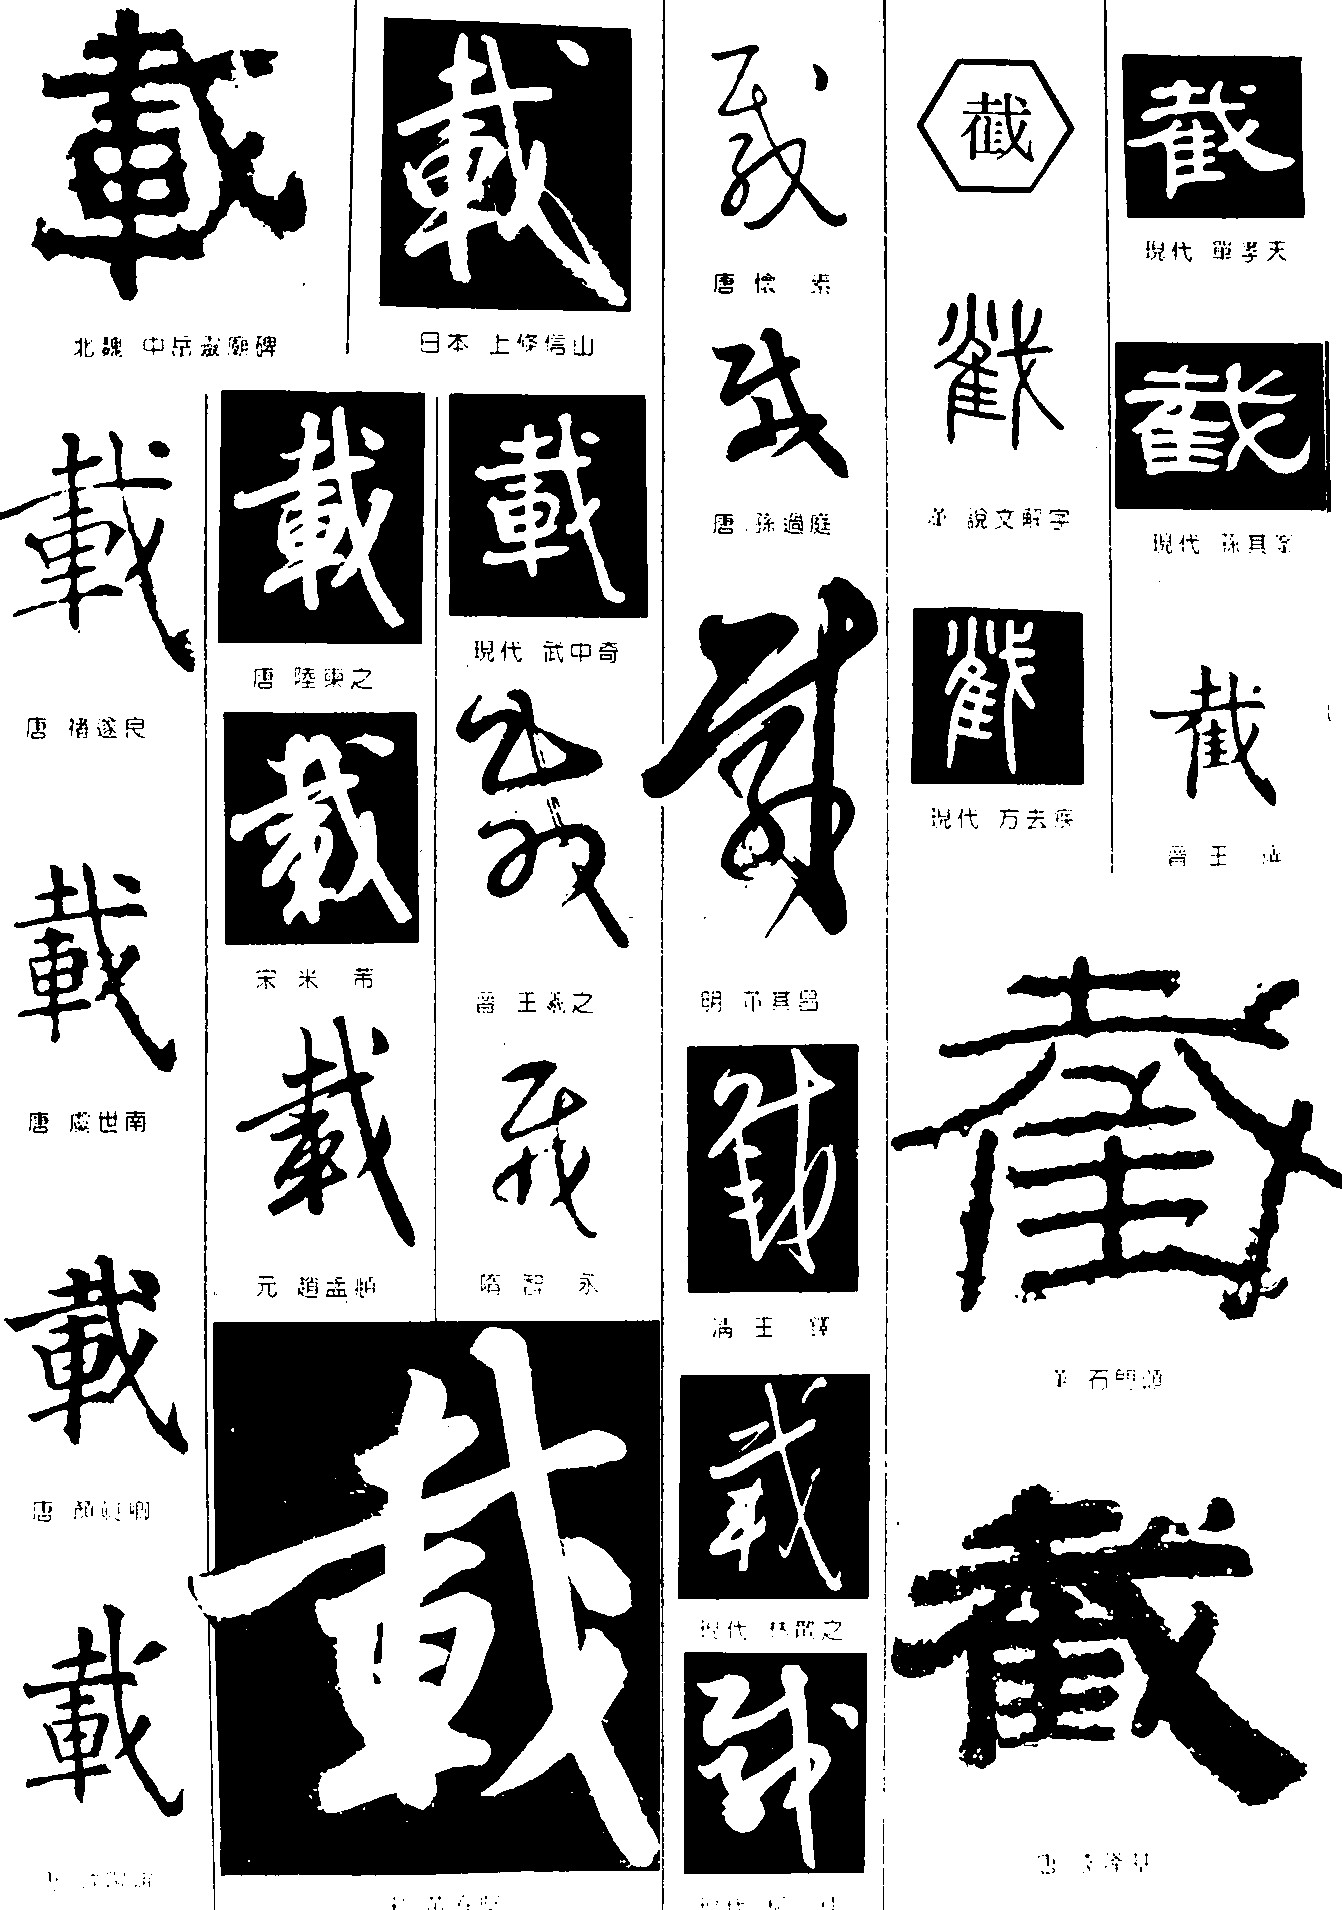 載
北魏 中岳嵩廟碑
載
唐 褚遂良
載
唐 虞世南
載
唐 顏真卿
載
載
日本 上條信山
載
唐 陸柬之
載
宋 米 芾
載
元 趙孟頫
載
載
現代 武中奇
載
晉 王羲之
載
隋 智 永
載
唐 懷 素
載
唐 孫過庭
載
明 董其昌
載
清 王 鐸
載
現代 林散之
載
截
截
漢 說文解字
截
現代 方去疾
截
漢 石門頌
截
截
現代 單孝天
截
現代 孫其峰
截
晉 王